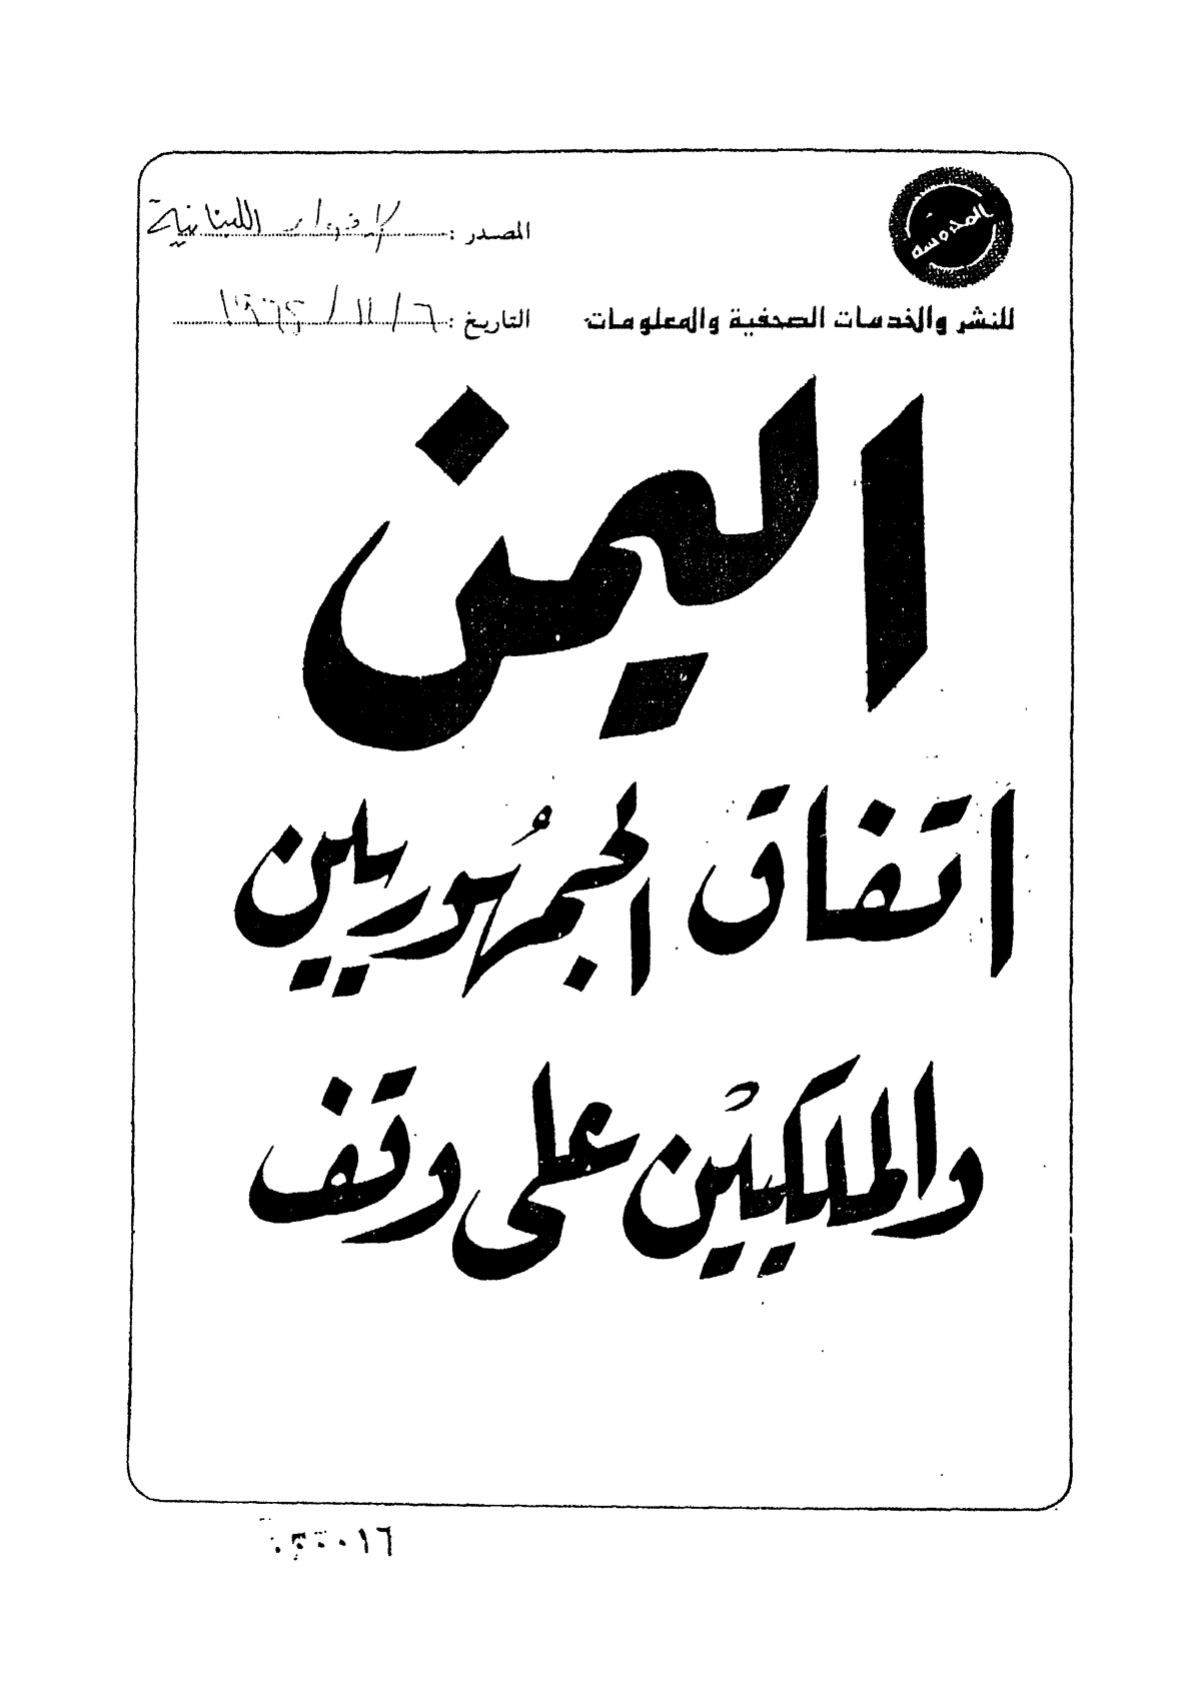 المحروسة
المصدر : الأنوار اللبنانية
للنشر والخدمات الصحفية والمعلومات
التاريخ : ٦ / ١١ / ١٩٦٤
اليمن
اتفاق الجمهوريين
والملكيين على وقف